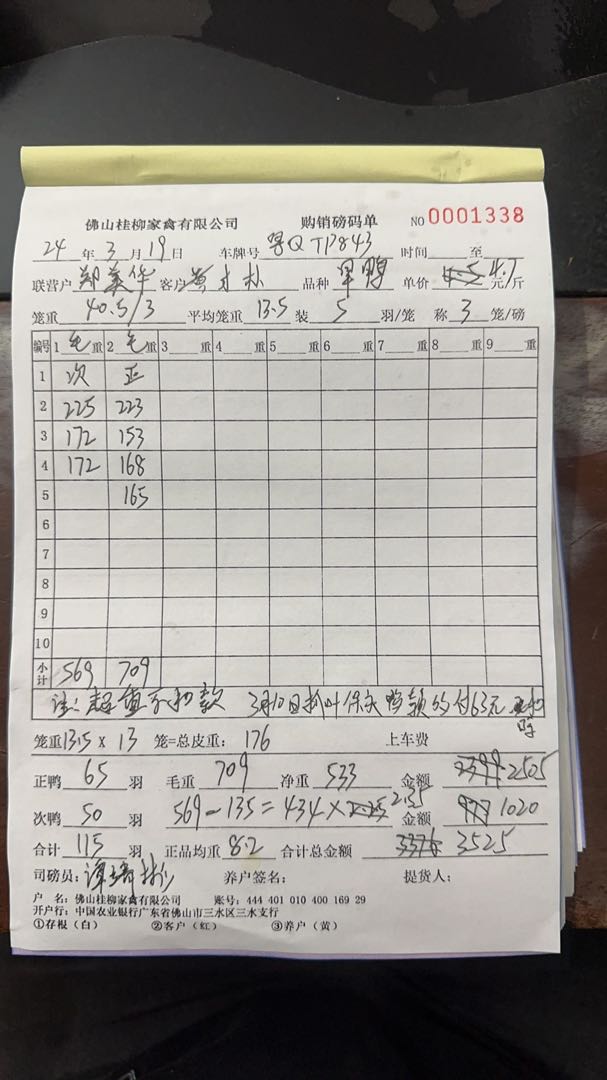 佛山桂柳家禽有限公司 购销磅码单 NO 0001338
24 年 3 月 19 日 车牌号 粤QTP843 时间 至
联营户 郑美华 客户 品种 单价 4.5 4.7 元/斤
笼重 40.5/3 平均笼重 13.5 装 5 羽/笼 称 3 笼/磅
编号 1 毛 重 2 毛 重 3 重 4 重 5 重 6 重 7 重 8 重 9 重
1 次 正
2 225 223
3 172 153
4 172 168
5 165
6
7
8
9
10
小计 569 709
注: 超重不扣款 3月10日 63元
笼重 13.5 X 13 笼=总皮重: 176 上车费
正鸭 65 羽 毛重 709 净重 533 金额 2505
次鸭 50 羽 569-135=434× 2.35 金额 977 1020
合计 115 羽 正品均重 8.2 合计总金额 3376 3525
司磅员: 养户签名: 提货人:
户 名: 佛山桂柳家禽有限公司 账号: 444 401 010 400 169 29
开户行: 中国农业银行广东省佛山市三水区三水支行
①存根（白） ②客户（红） ③养户（黄）